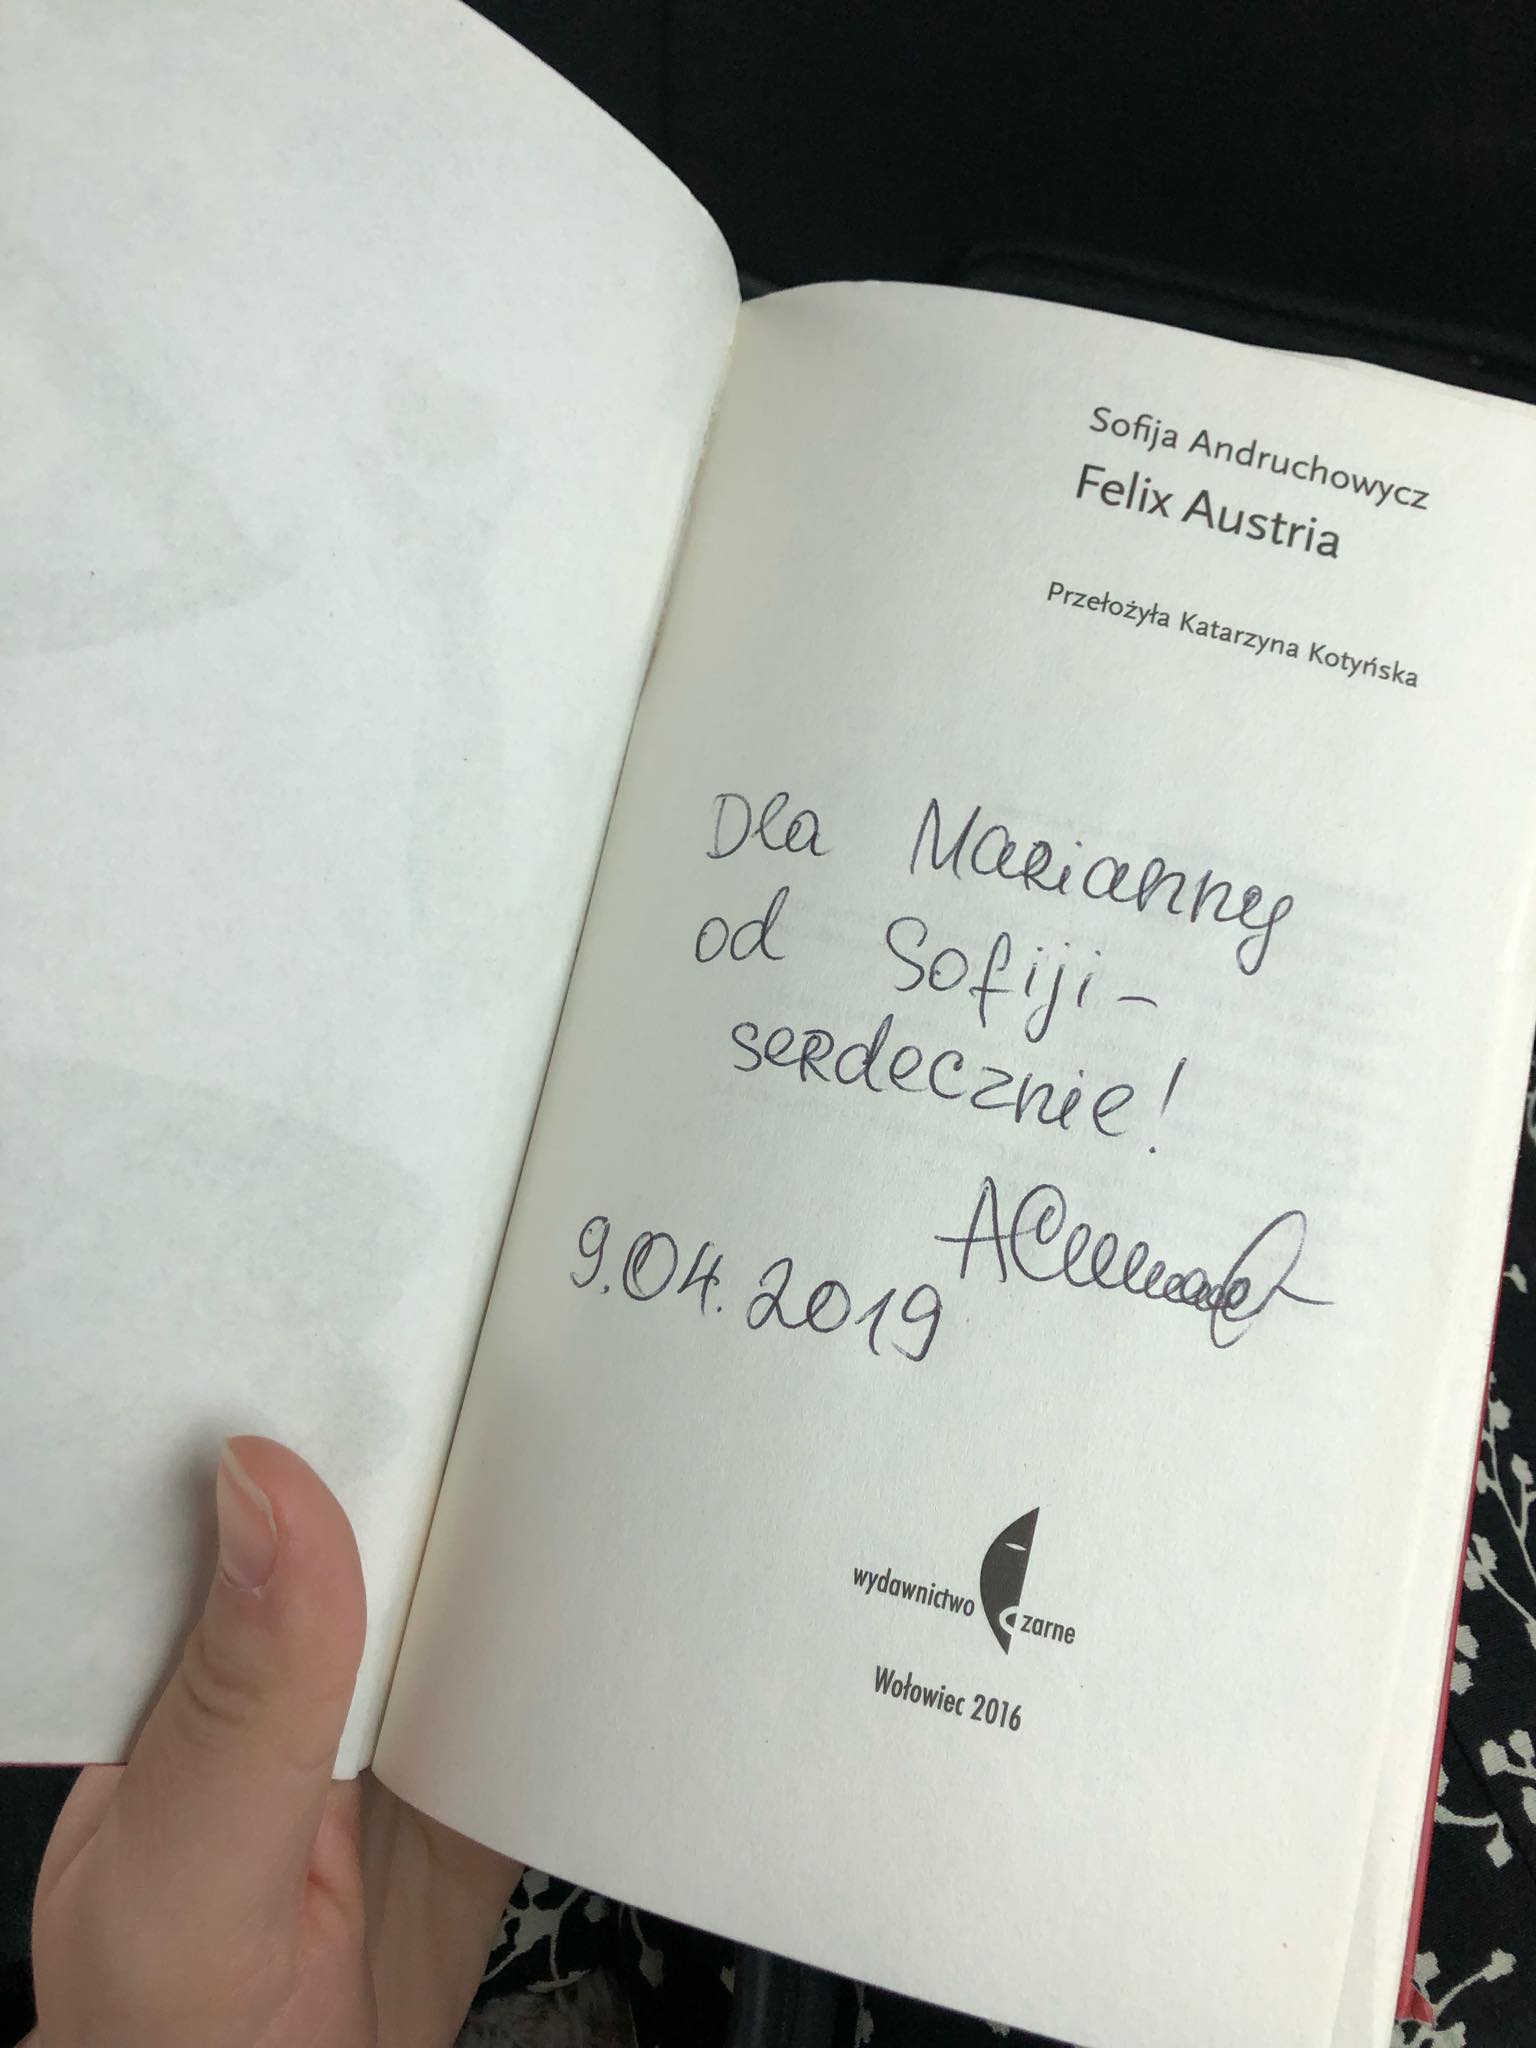 Sofija Andruchowycz
Felix Austria
Przełożyła Katarzyna Kotyńska
Dla Marianny
od Sofiji –
serdecznie!
9.04.2019
wydawnictwo Czarne
Wołowiec 2016